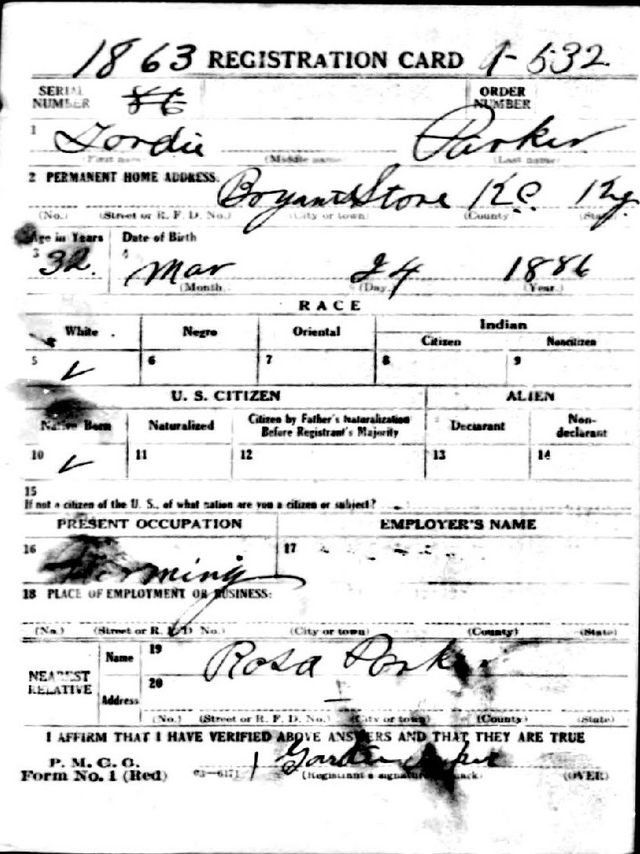 1863 REGISTRATION CARD A-532
SERIAL NUMBER
ORDER NUMBER
1 Gordie Parker
(First name) (Middle name) (Last name)
2 PERMANENT HOME ADDRESS: Bryants Store K.C. Ky
(No.) (Street or R. F. D. No.) (City or town) (County) (State)
Age in Years Date of Birth
3 32 4 Mar 24 1886
(Month) (Day) (Year.)
RACE
White Negro Oriental Indian
Citizen Noncitizen
5 ✓ 6 7 8 9
U. S. CITIZEN ALIEN
Native Born Naturalized Citizen by Father's Naturalization Before Registrant's Majority Declarant Non-declarant
10 ✓ 11 12 13 14
15
If not a citizen of the U. S., of what nation are you a citizen or subject?
PRESENT OCCUPATION EMPLOYER'S NAME
16 Farming 17
18 PLACE OF EMPLOYMENT OR BUSINESS:
(No.) (Street or R. F. D. No.) (City or town) (County) (State)
NEAREST RELATIVE
Name 19 Rosa Parker
Address 20 —
(No.) (Street or R. F. D. No.) (City or town) (County) (State)
I AFFIRM THAT I HAVE VERIFIED ABOVE ANSWERS AND THAT THEY ARE TRUE
P. M. G. O.
Form No. 1 (Red) 03—6171 Gordie Parker
(Registrant's signature or mark) (OVER)